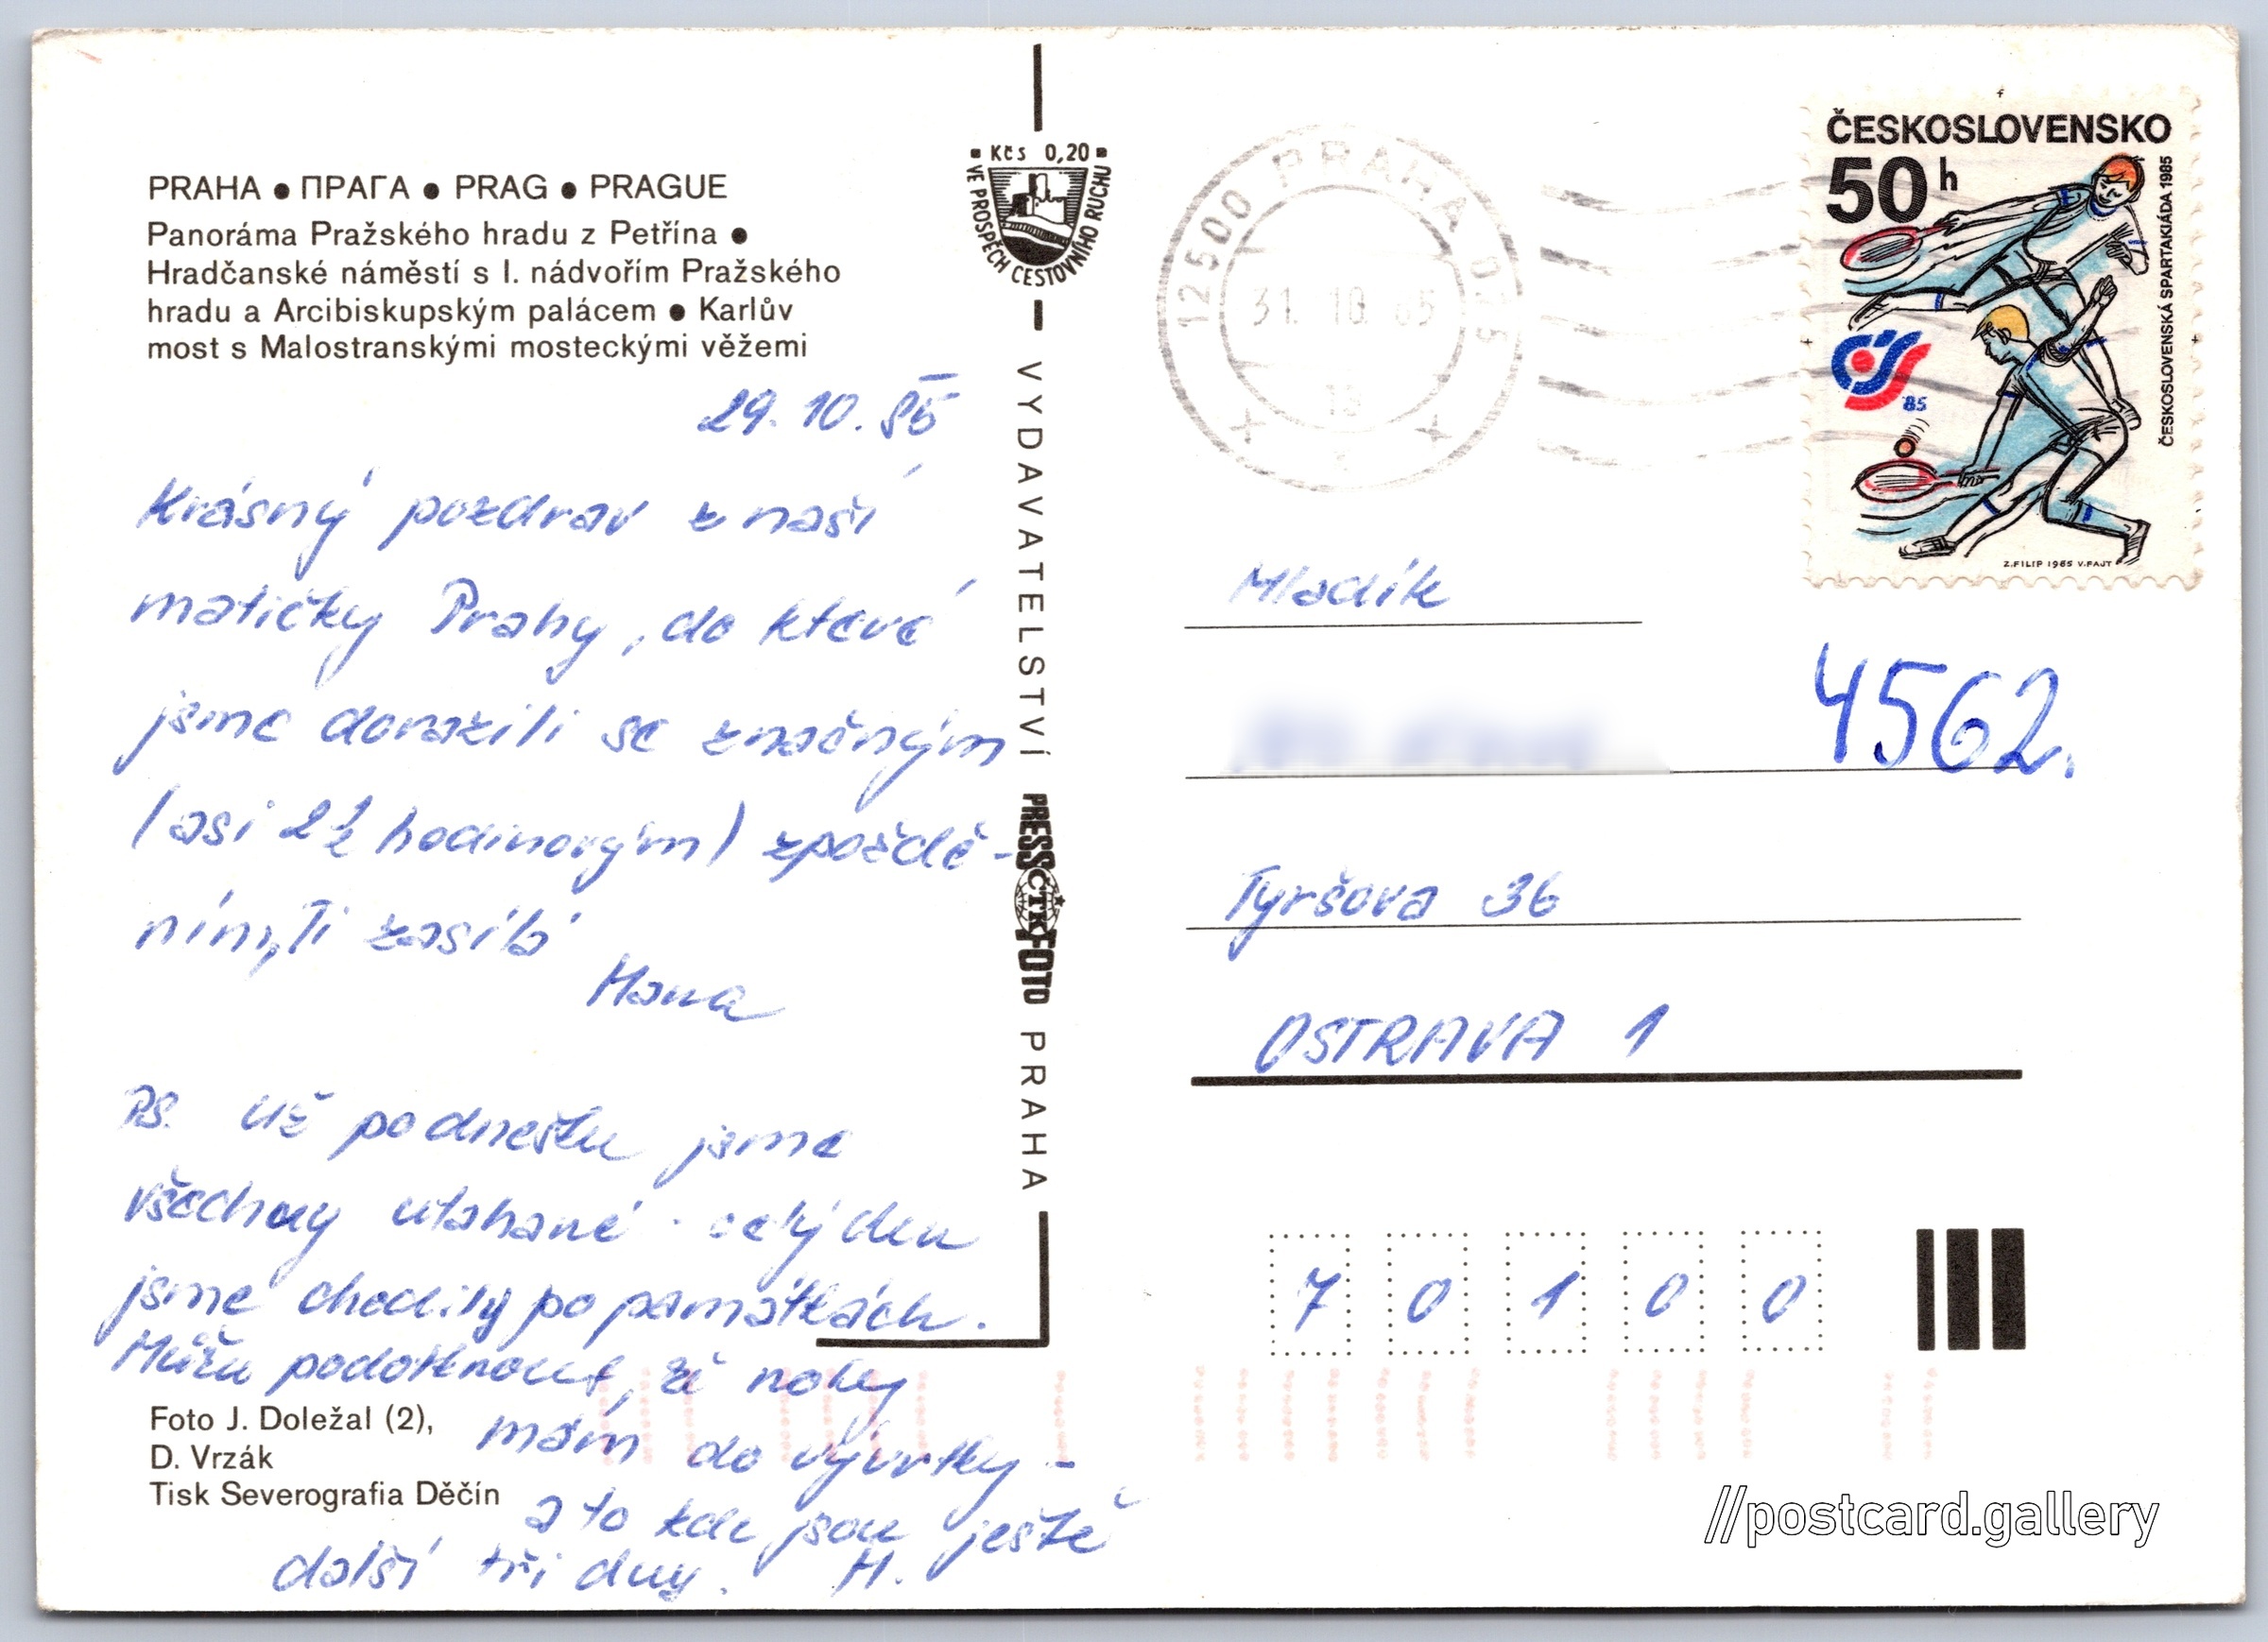 PRAHA ● ПРАГА ● PRAG ● PRAGUE
Panoráma Pražského hradu z Petřína ●
Hradčanské náměstí s I. nádvořím Pražského
hradu a Arcibiskupským palácem ● Karlův
most s Malostranskými mosteckými věžemi
29. 10. 85
Krásný pozdrav z naší
matičky Prahy, do které
jsme dorazili se značným
(asi 2 1/2 hodinovým) zpoždě-
ním, Ti zasílá
Hana
PS. Už po dnešku jsme
všechny utahané - celý den
jsme chodily po památkách.
Můžu podotknout, že nohy
mám do vývrtky -
a to zde jsou ještě
další tři dny. H.
Foto J. Doležal (2),
D. Vrzák
Tisk Severografia Děčín
Kčs 0,20
VE PROSPĚCH CESTOVNÍHO RUCHU
VYDAVATELSTVÍ PRESSFOTO PRAHA
ČTK
125 00 PRAHA 025
31. 10. 85
ČESKOSLOVENSKO
50 h
ČESKOSLOVENSKÁ SPARTAKIÁDA 1985
'85
Z. FILIP 1985 V. FAJT
Mladík
4562.
Tyršova 36
OSTRAVA 1
7 0 1 0 0
//postcard.gallery